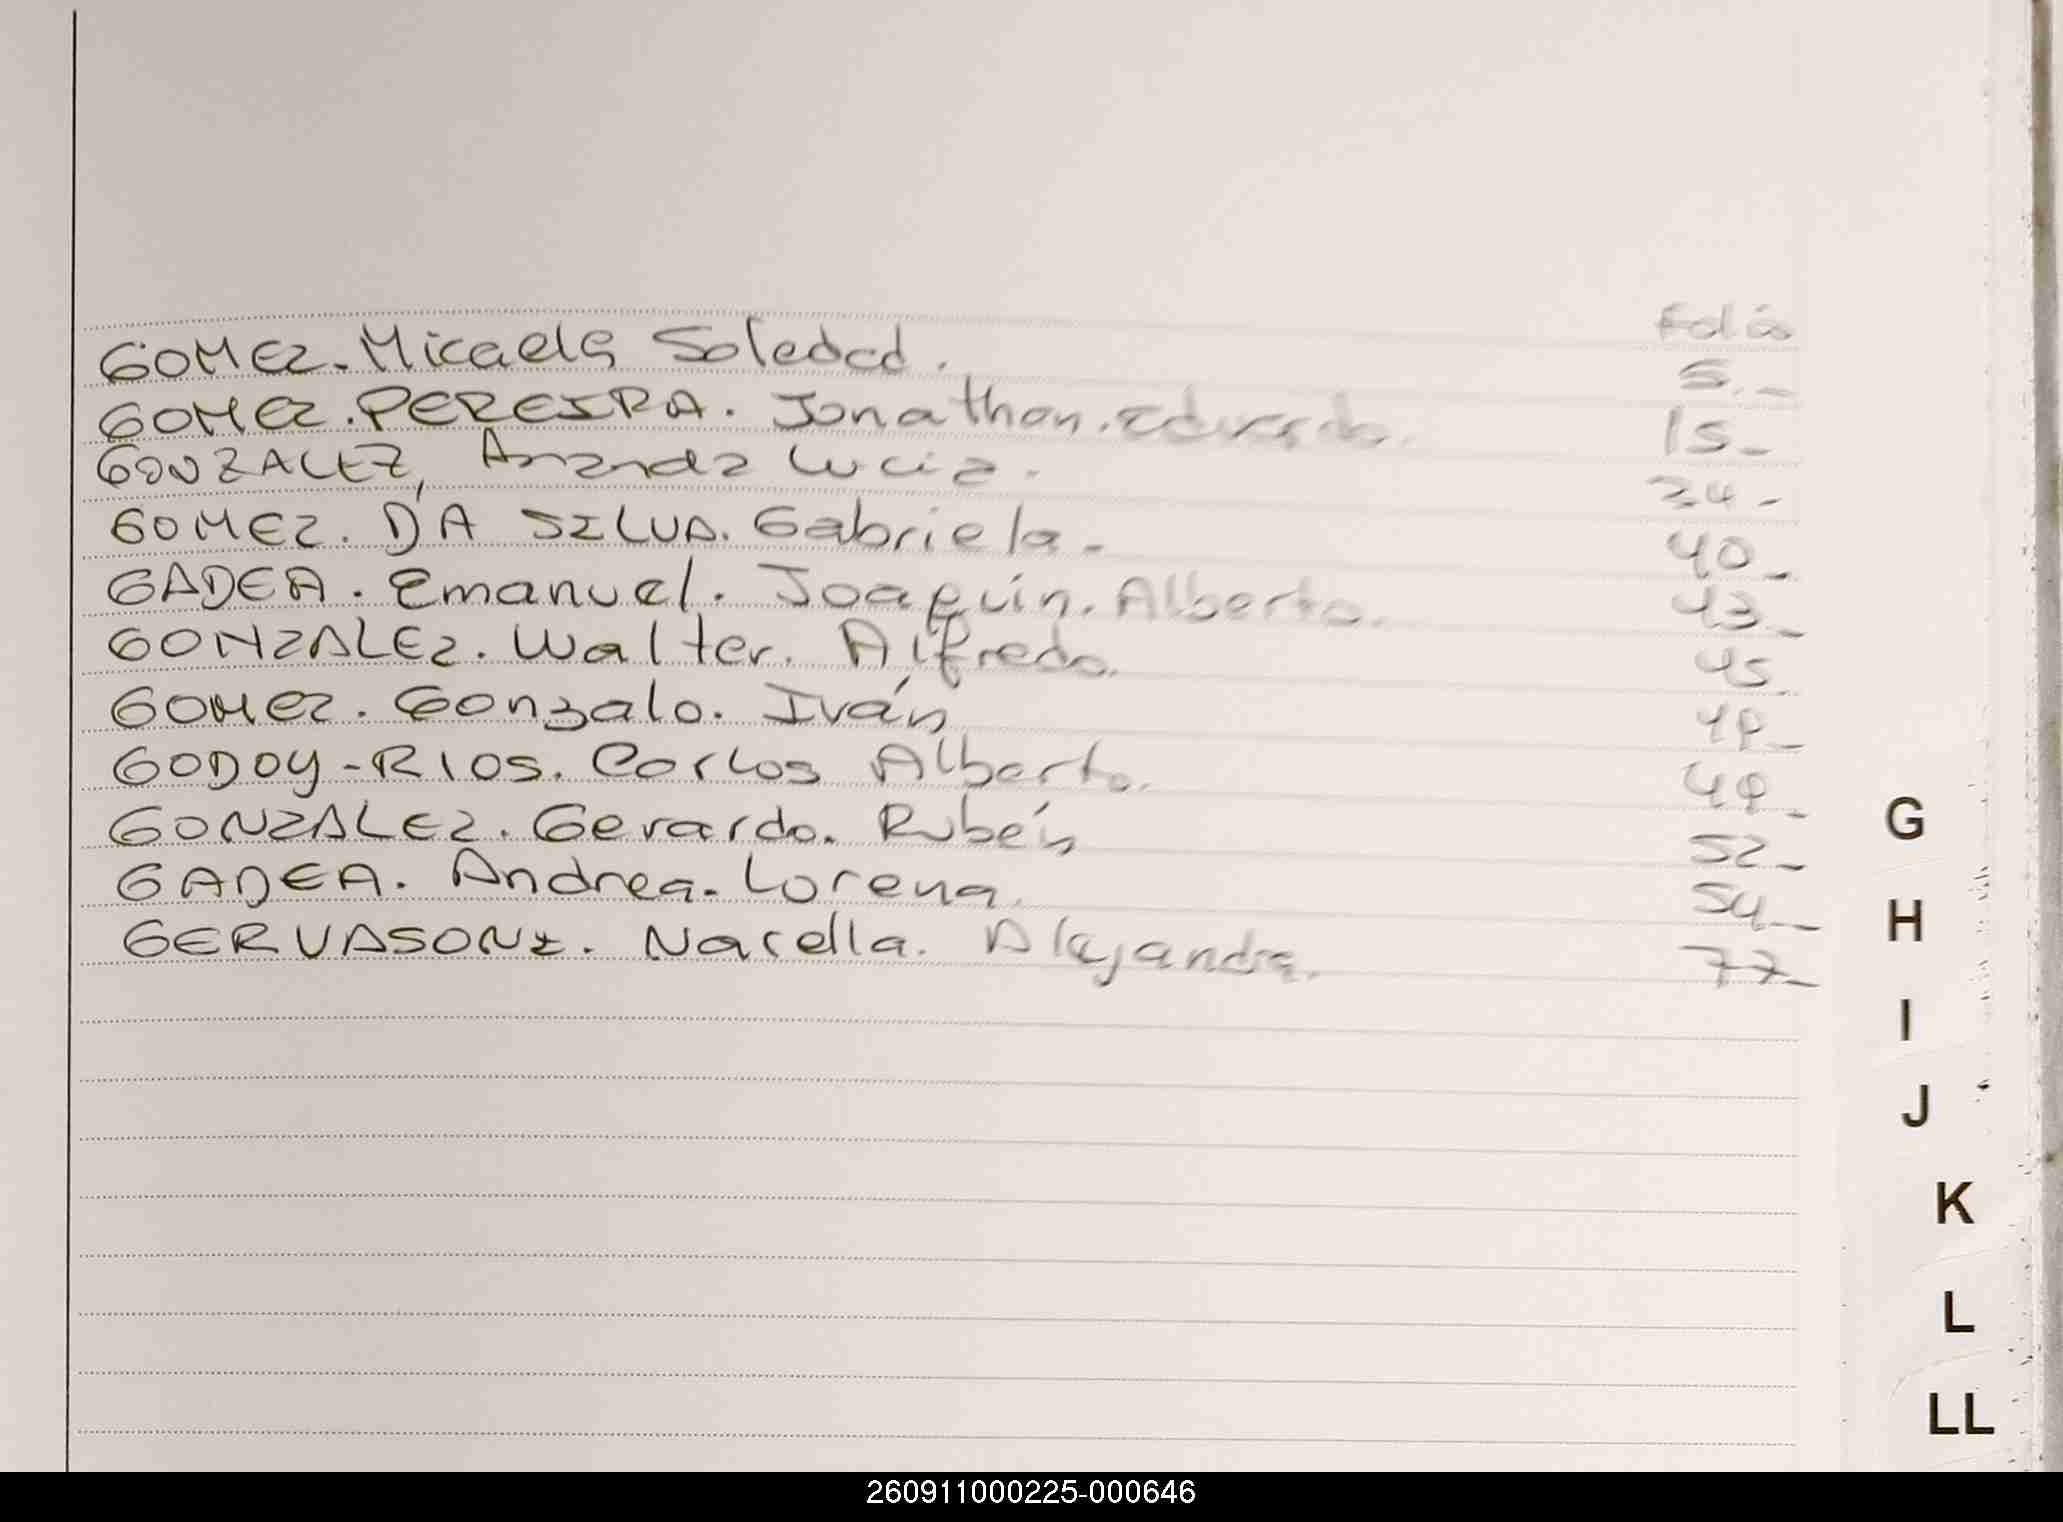 Folio
GOMEZ. Micaela Soledad. 5.-
GOMEZ. PEREIRA. Jonathan. Eduardo. 15-
GONZALEZ, Ananda Lucia. 34-
GOMEZ. DA SILVA. Gabriela. 40-
GADEA. Emanuel. Joaquín. Alberto. 43-
GONZALEZ. Walter. Alfredo. 45.
GOMEZ. Gonzalo. Iván
GODOY-RIOS. Carlos Alberto. 49-
GONZALEZ. Gerardo. Rubén 52-
GADEA. Andrea. Lorena. 54-
GERVASONI. Narella. Alejandra. 77-
G
H
I
J
K
L
LL
260911000225-000646